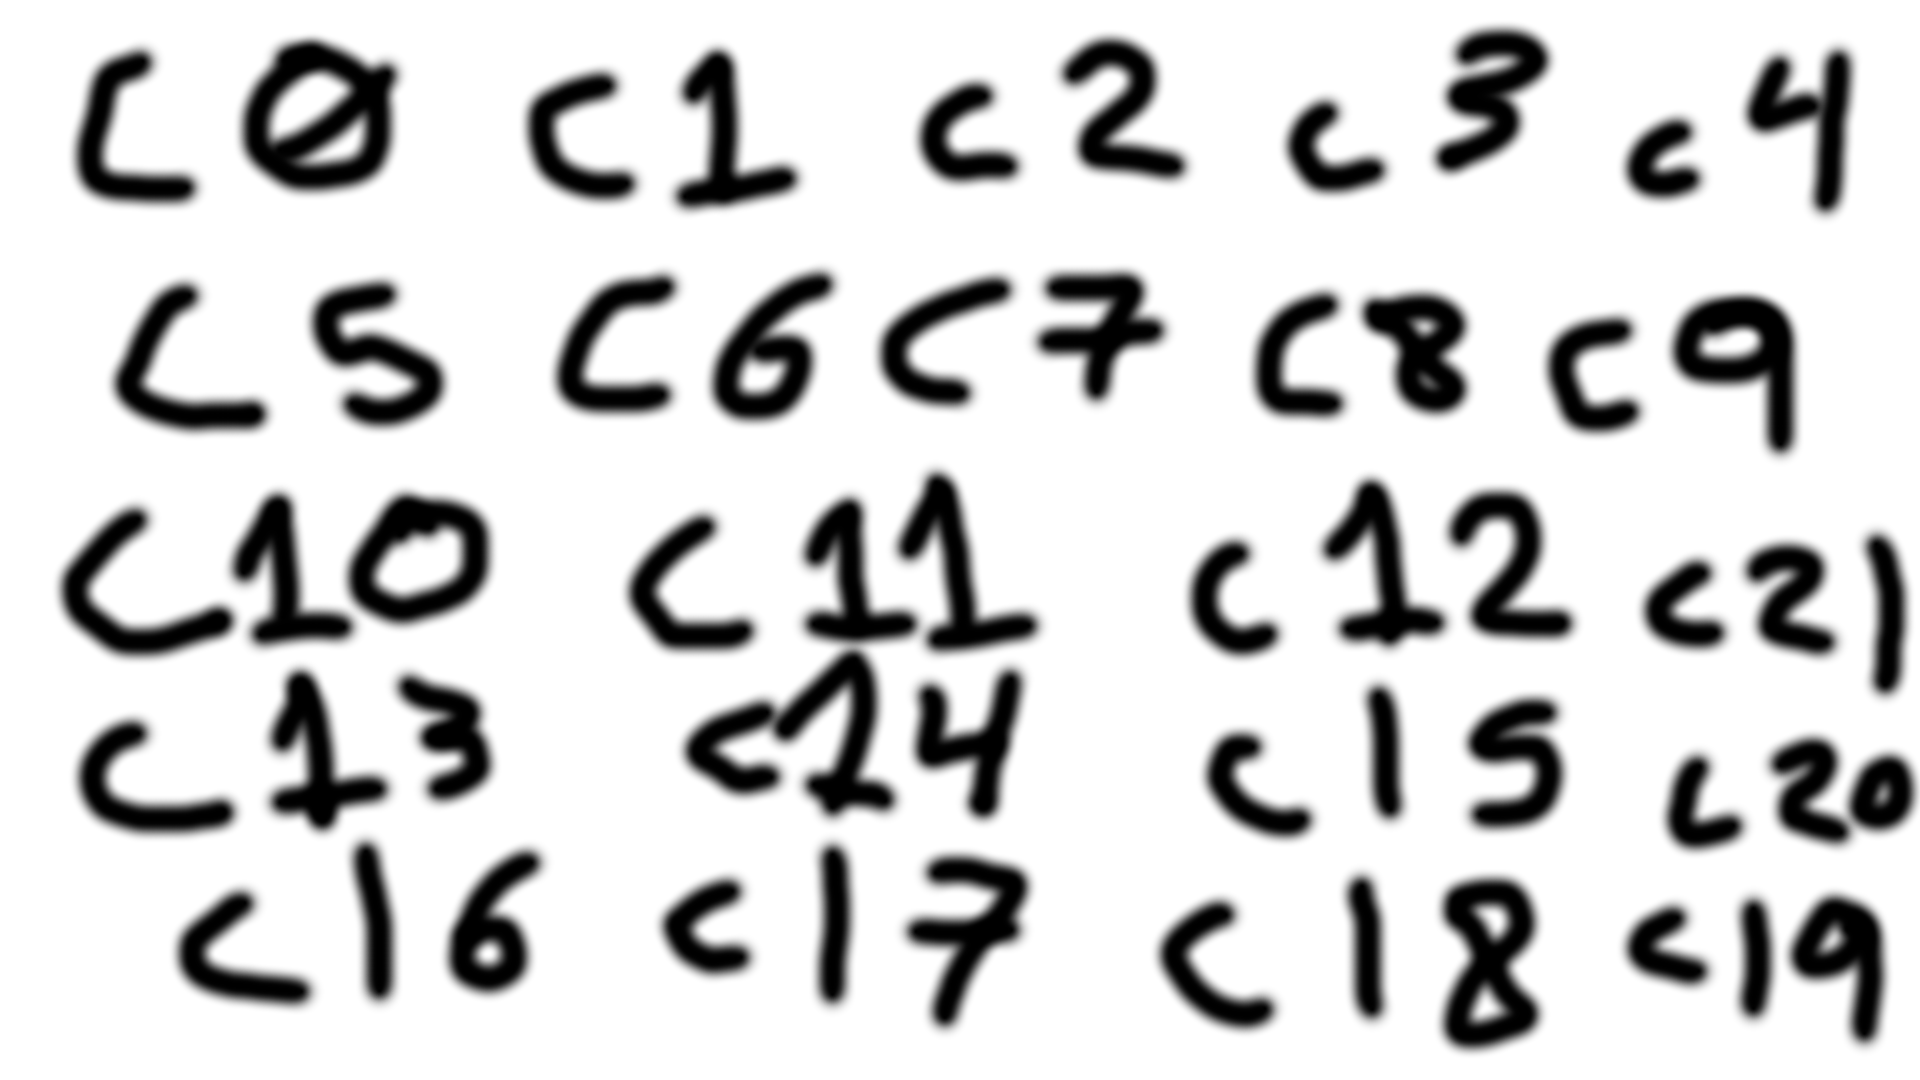 C0 C1 C2 C3 C4
C5 C6 C7 C8 C9
C10 C11 C12 C21
C13 C14 C15 C20
C16 C17 C18 C19